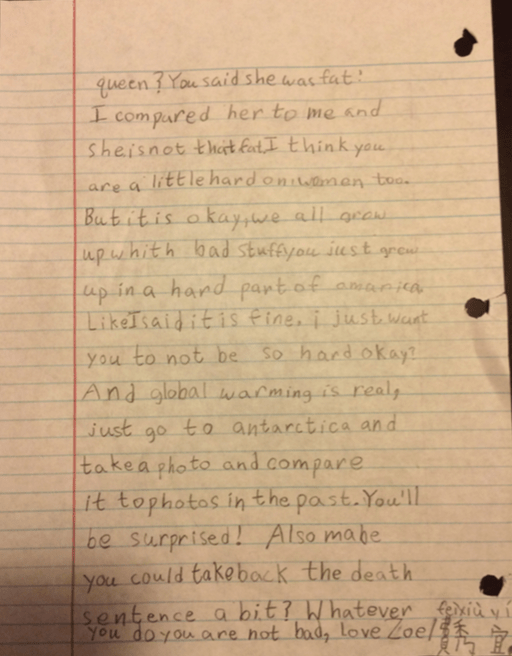 queen? You said she was fat!
I compared her to me and
she is not that fat I think you
are a little hard on women too.
But it is okay, we all grew
up whith bad stuff, you just grew
up in a hard part of amarica
Like I said it is fine. i just want
you to not be so hard okay?
And global warming is real,
just go to antarctica and
take a photo and compare
it to photos in the past. You'll
be surprised! Also mabe
you could take back the death
sentence a bit? Whatever
you do you are not bad, love Zoe!
feixiù yí
秀宜